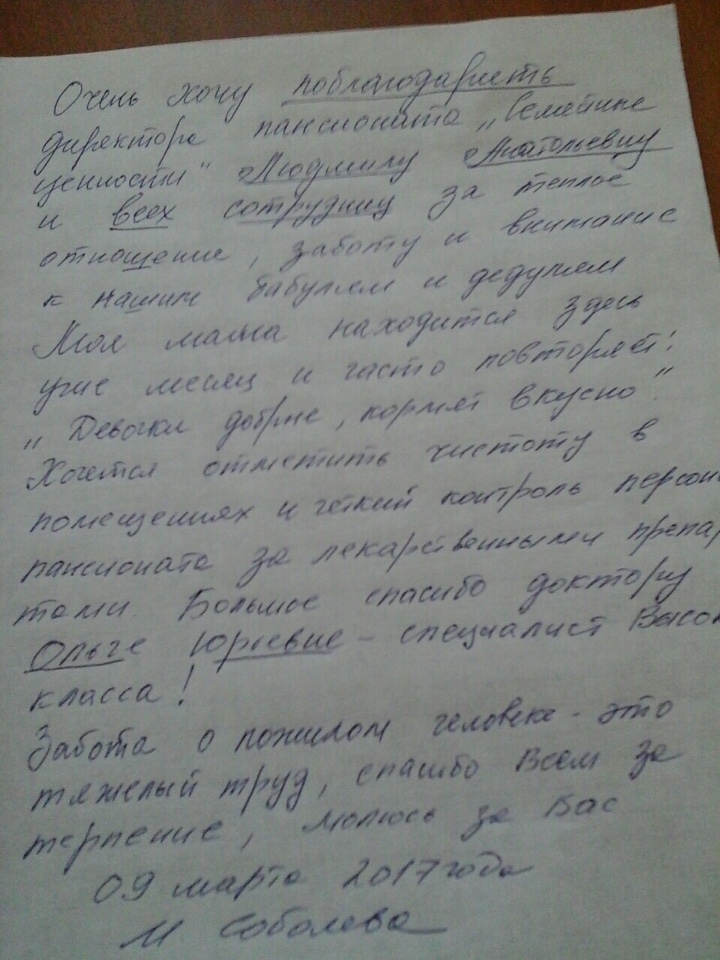 Очень хочу поблагодарить
директора пансионата „Семейные
ценности" Людмилу Анатольевну
и всех сотрудниц за теплое
отношение, заботу и внимание
к нашим бабулям и дедулям
Моя мама находится здесь
уже месяц и часто повторяет:
„Девочки добрые, кормят вкусно".
Хочется отметить чистоту в
помещениях и четкий контроль персон
пансионата за лекарственными препар
тами. Большое спасибо доктору
Ольге Юрьевне – специалист Высок
класса!
Забота о пожилом человеке - это
тяжелый труд, спасибо Всем за
терпение, молюсь за Вас
09 марта 2017 года
И. Соболева